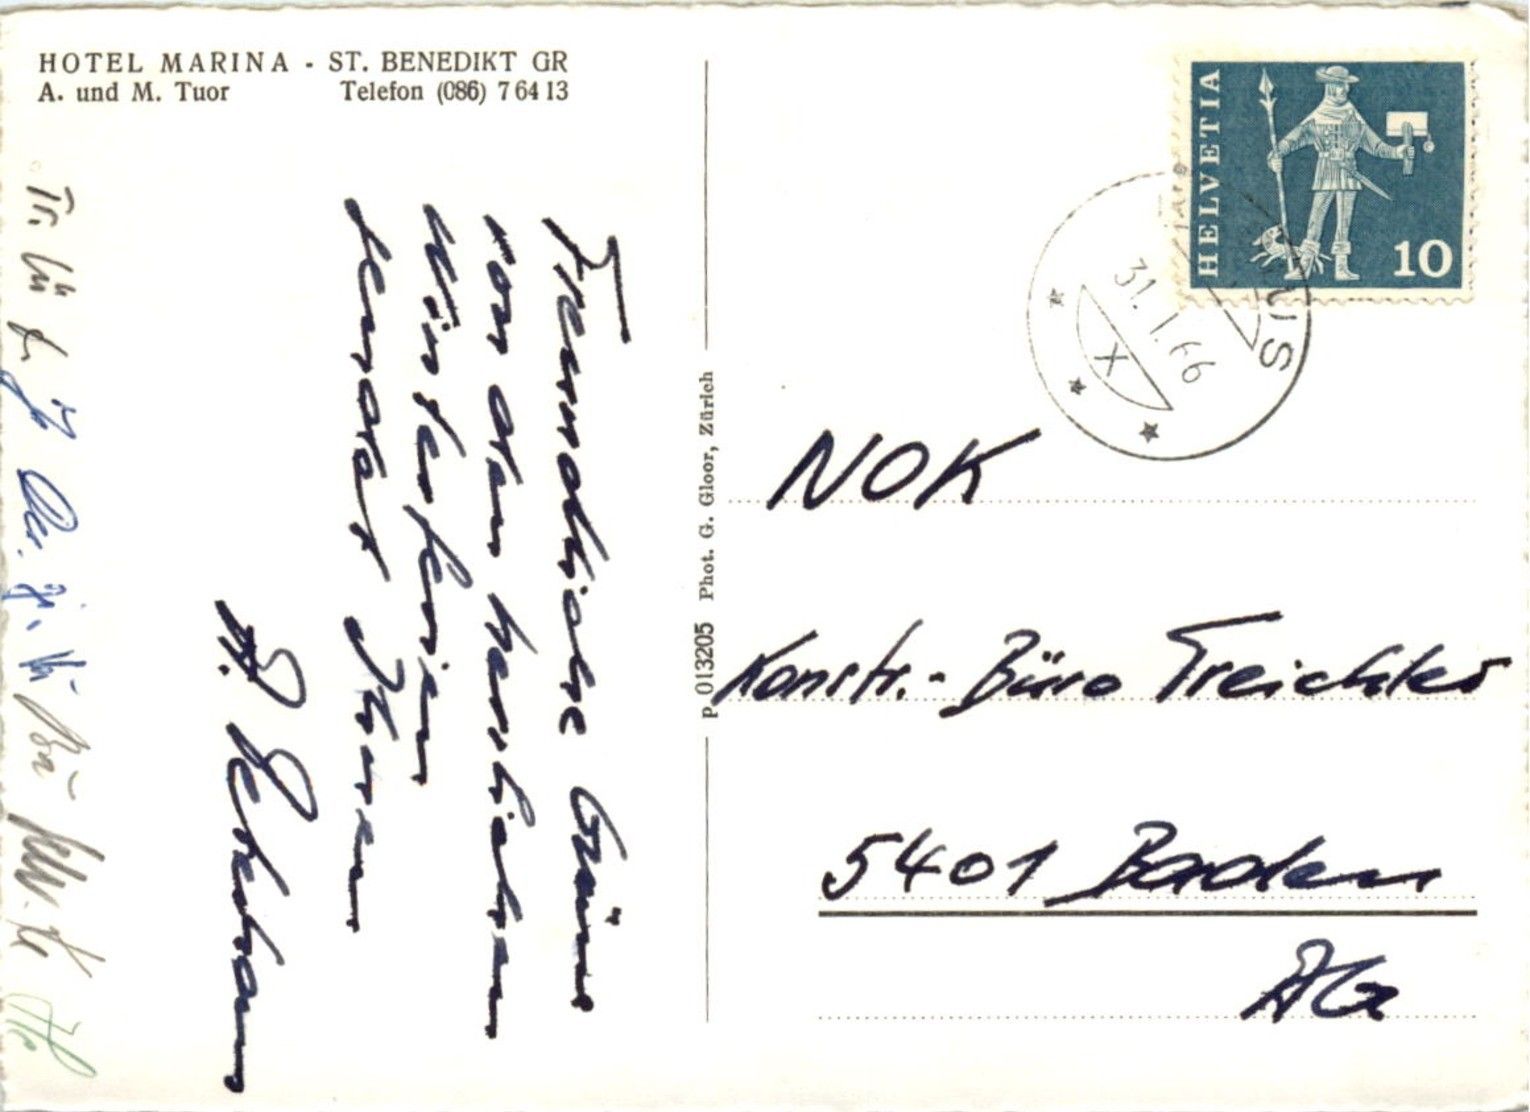 HOTEL MARINA - ST. BENEDIKT GR
A. und M. Tuor Telefon (086) 7 64 13
Freundliche Grüsse
von den herrlichen
Winterferien
sendet Ihnen
P 013205 Phot. G. Gloor, Zürich
HELVETIA
10
31.I.66
X
NOK
Konstr.-Büro Treichler
5401 Baden
AG